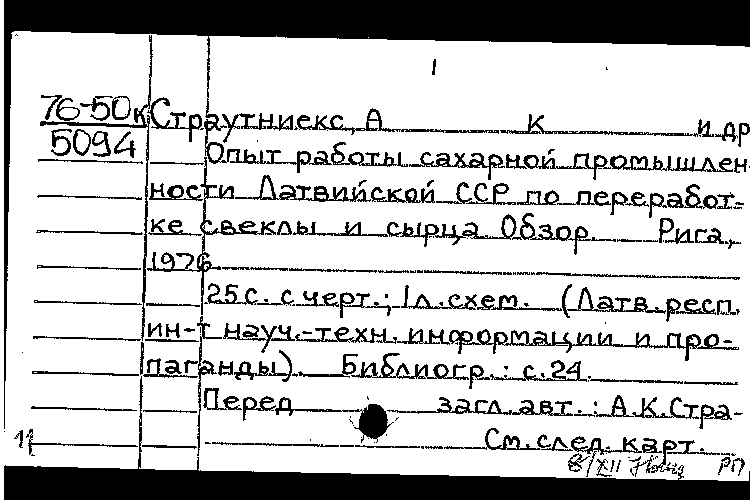 I
76-50к Страутниекс, А К и др
5094
Опыт работы сахарной промышлен
ности Латвийской ССР по переработ-
ке свеклы и сырца Обзор. Рига,
1976
25 с. с черт.; 1 л. схем. (Латв. респ.
ин-т науч.-техн. информации и про-
паганды). Библиогр.: с. 24.
Перед загл. авт.: А.К. Стра-
11 См. след. карт.
8/XII РП